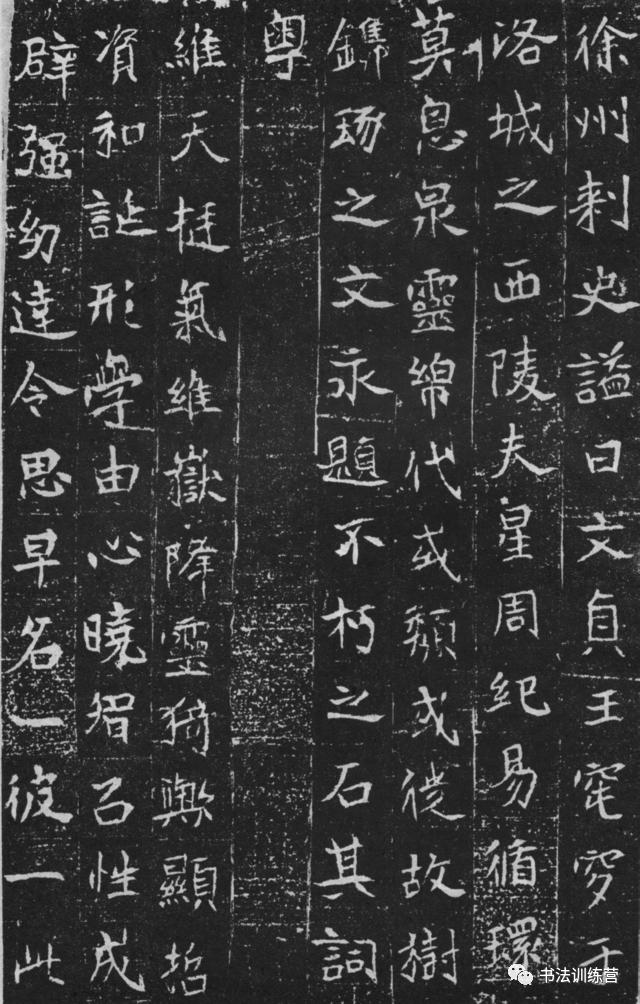 徐州刺史謚曰文貞王窀穸于
洛城之西陵夫星周紀易循環
莫息泉靈綿代或頹或徙故樹
鐫琢之文永題不朽之石其詞
粵
維天挺氣維嶽降靈猗歟顯哲
資和誕形學由心曉智㠯性成
辟强幼達令思早名一彼一此
书法训练营